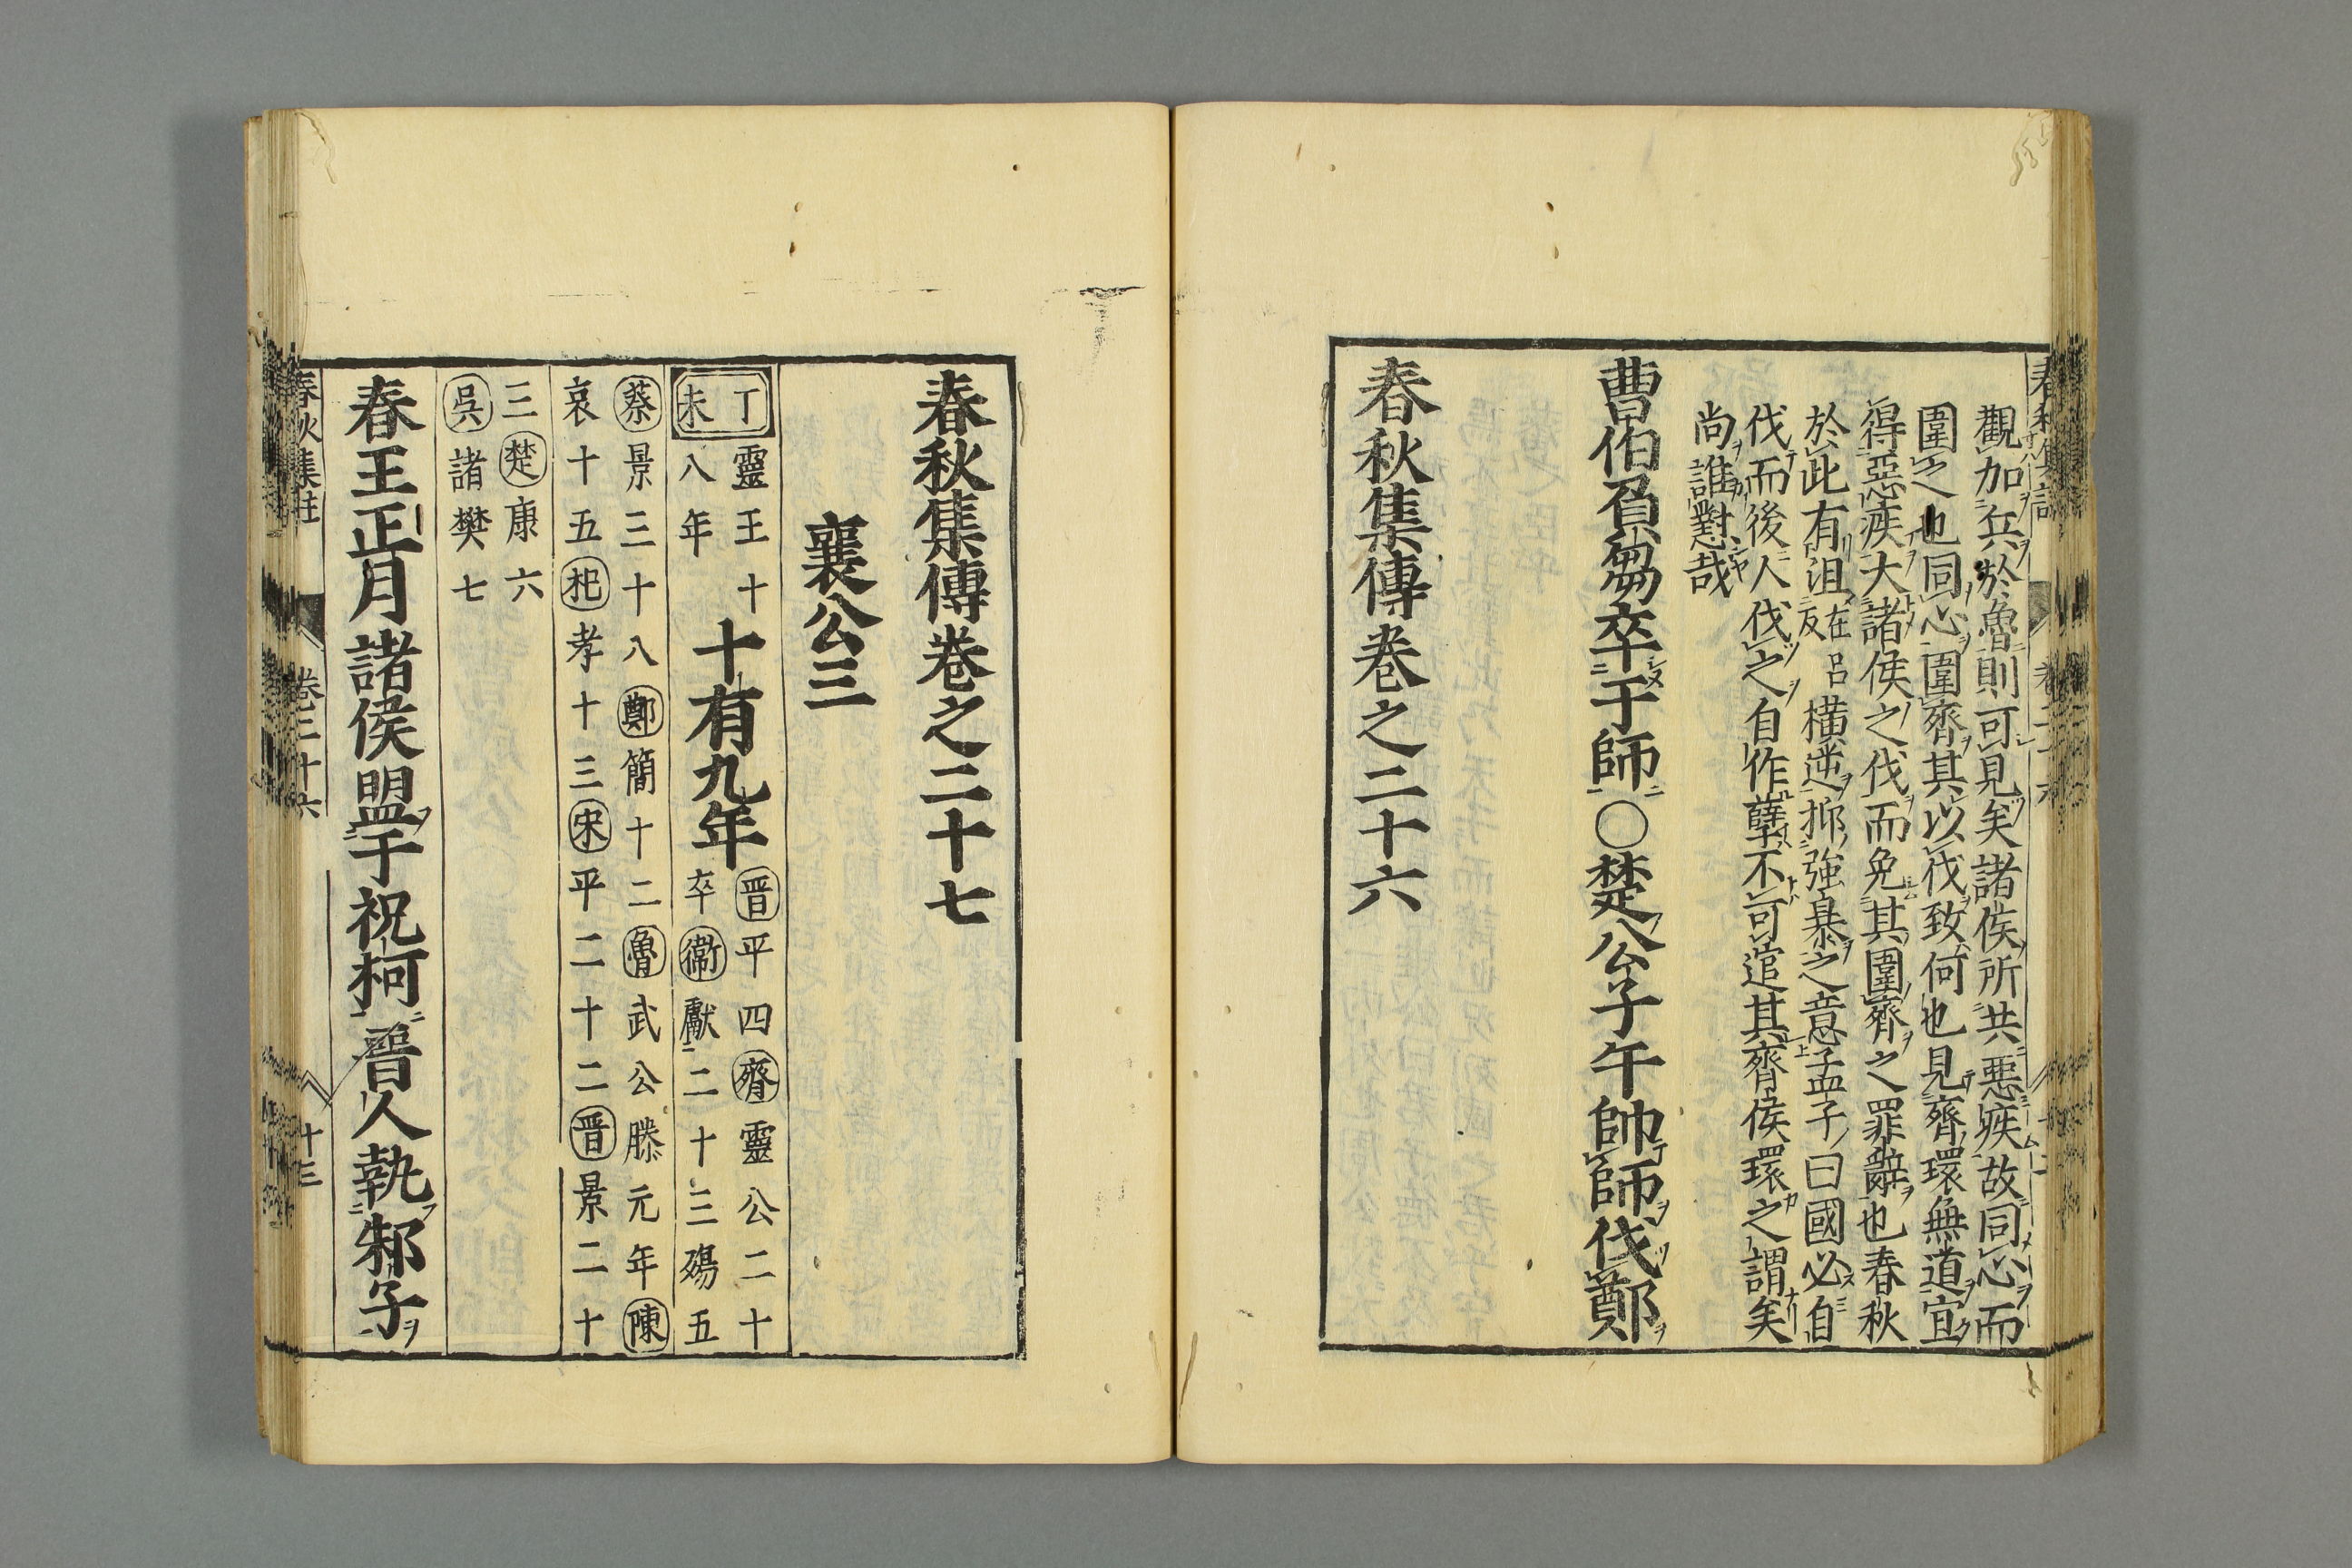 觀加兵於魯則可見矣諸侯所共惡疾故同心而
圍之也同心圍齊其以伐致何也見齊環無道宜
得惡疾大諸侯之伐而免其圍齊之罪辭也春秋
於此有沮在呂反橫逆抑強暴之意孟子曰國必自
伐而後人伐之自作孽不可逭其齊侯環之謂矣
尚誰懟哉
曹伯負芻卒于師○楚公子午帥師伐鄭
春秋集傳卷之二十六
春秋集傳卷之二十七
襄公三
丁未靈王十八年十有九年晉平四齊靈公二十卒衞獻二十三殤五
蔡景三十八鄭簡十二魯武公滕元年陳
哀十五杞孝十三宋平二十二晋景二十
三楚康六
吳諸樊七
春王正月諸侯盟于祝柯晉人執邾子
春秋集註 卷二十六 十三